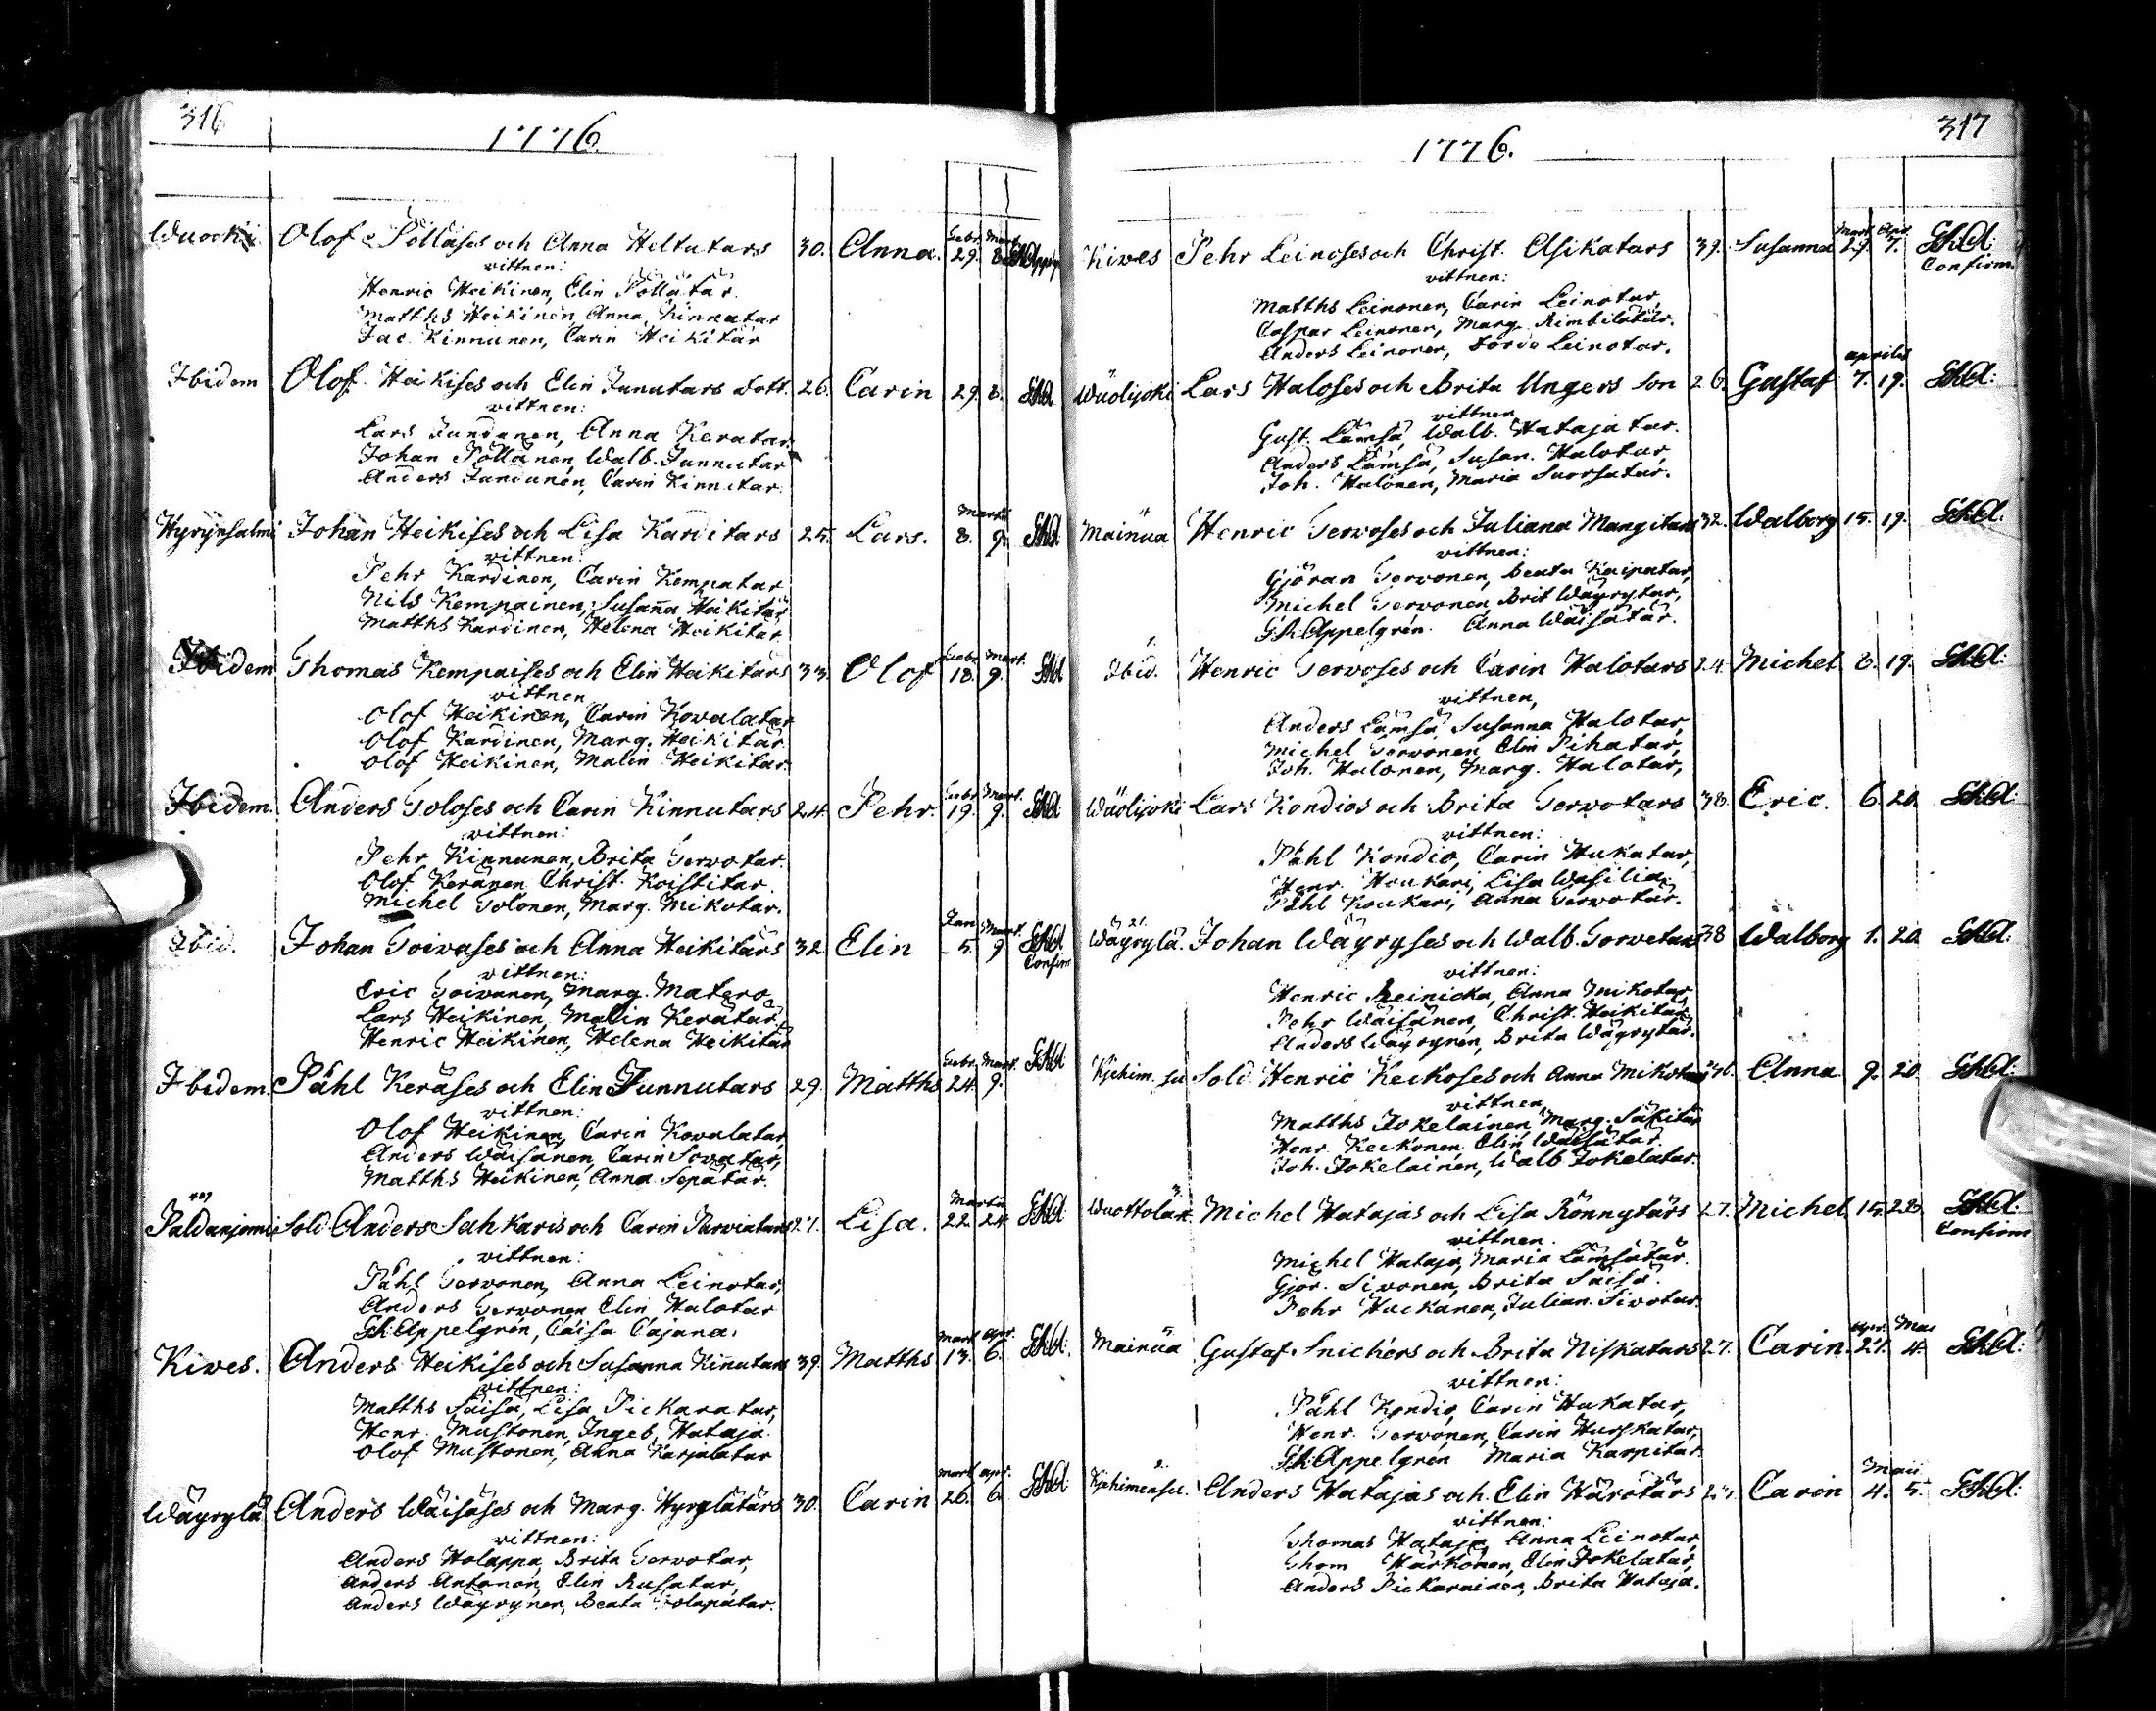 316
1776.
Wuocki Olof Pölläses och Anna Heltutars 30. Anna. Febr. 29. Mart. 8.
vittnen:
Henric Heikinen, Elin Pöllätär.
Matths Heikinen Anna Kinnutar
Jac. Kinnunen, Carin Heikitär
Ibidem Olof Heikises och Elin Junutars dott. 26. Carin 29. 8.
vittnen:
Lars Jundunen, Anna Keratar
Johan Pöllänen, Walb. Junnutar
Anders Jundunen, Carin Kinnutar.
Hyrynsalmi Johan Heikises och Lisa Karditars 25. Lars. Martii 8. 9.
vittnen:
Pehr Kardinen, Carin Kempatar
Nils Kempainen, Susanna Heikitär
Matths Kardinen, Helena Heikitär
Ibidem Thomas Kempaises och Elin Heikitärs 33. Olof Febr. 18. Mart. 9.
vittnen
Olof Heikinen, Carin Kovalatar
Olof Kardinen, Marg. Heikitär
Olof Heikinen, Malin Heikitar.
Ibidem. Anders Toloses och Carin Kinnutars 24. Pehr. Febr. 19. Mart. 9.
vittnen:
Pehr Kinnunen, Brita Tervotar.
Olof Keränen Christ. Koistitar.
Michel Tolonen, Marg. Mikotar.
Ibid. Johan Toivases och Anna Heikitärs 32. Elin Jan 5. Mart. 9. Confirm
vittnen:
Eric Toivanen, Marg. Matero
Lars Heikinen, Malin Kerätär,
Henric Heikinen, Helena Heikitär
Ibidem. Påhl Keräses och Elin Junnutars 29. Matths Febr. 24. Mart. 9.
vittnen:
Olof Heikinen, Carin Kovalatar
Anders Wäisänen, Carin Sovatar,
Matths Heikinen, Anna Sepätär.
Paldanjemi Sold Anders Sahkaris och Carin Jarviatars 27. Lisa. Martii 22. 24.
vittnen:
Påhl Tervonen, Anna Leinotar,
Anders Tervonen Elin Halotar
Appelgrén, Caisa Cajana.
Kives. Anders Heikises och Susanna Kinutars 39. Matths Mart 13. Apr. 6.
vittnen:
Matths Säisä, Lisa Pickaratar,
Henr. Mustonen, Ingeb. Hataja.
Olof Mustonen, Anna Karjalatar
Wäyrylä Anders Wäisäses och Marg. Hyrylätärs 30. Carin Mart 26. Apr. 6.
vittnen:
Anders Holappa, Brita Tervotar,
Anders Antonen, Elin Rusatar,
Anders Wäyrynen, Beata Holapatar.
317
1776.
Kives Pehr Leinoses och Christ. Asikatars 39. Susanna Mart. 29. Apr. 7. Confirm.
vittnen:
Matths Leinonen, Carin Leinotar,
Caspar Leinonen, Marg. Rimbilätär.
Anders Leinonen, Dordo Leinotar.
Wuolijoki Lars Haloses och Brita Ungers son 26. Gustaf Aprilis 7. 19.
vittnen
Gust. Lämsä, Walb. Hatajatar.
Anders Lämsä, Susan. Halotar,
Joh. Halonen, Maria Suorsatar.
Mainua Henric Tervoses och Juliana Mangitars 32. Walborg 15. 19.
vittnen:
Gjöran Tervonen, Beata Kaipatar,
Michel Tervonen, Brit Wäyrytär,
Appelgrén. Anna Wäisätär.
Ibid. Henric Tervoses och Carin Halotars 24. Michel 8. 19.
vittnen,
Anders Lämsä, Susanna Halotar,
Michel Tervonen Elin Pihatar,
Joh. Halonen, Marg. Halotar,
Wuolijoki Lars Kondios och Brita Tervotars 38. Eric. 6. 20.
vittnen:
Påhl Kondio, Carin Hukatar,
Henr. Koukari, Lisa Wasilia.
Påhl Koukari, Anna Tervotar.
Wäyrylä. Johan Wäyryses och Walb. Torvetars 38 Walborg 1. 20.
vittnen:
Henric Reinicka, Anna Mikotar
Pehr Wäisänen, Christ. Heikitär
Anders Wäyrynen, Brita Wäyrytär.
Kjehim. su Sold Henric Keckoses och Anna Mikotars 36. Anna 9. 20.
vittnen
Matths Jokelainen, Marg. Säkitär
Henr. Keckonen Elin Wäisätär.
Joh. Jokelainen, Walb Jokelatar.
Wuottolax. Michel Hatajas och Lisa Rönnytärs 27. Michel 15. 28. Confirm
vittnen.
Michel Hataja, Maria Lämsätär.
Gjör. Sivonen, Brita Säisä.
Pehr Huckanen, Julian. Sivotar.
Mainua Gustaf Snichers och Brita Niskatars 27. Carin. Apr. 27. Mai 4.
vittnen:
Påhl Kondio, Carin Hukatar,
Henr. Tervonen, Carin Hurskatar,
Appelgrén Maria Karpitar.
Kjehimensu. Anders Hatajas och Elin Härötärs Carin Maii 4. 5.
vittnen:
Thomas Hataja, Anna Leinotar,
Thom Härkönen, Elin Jokelatar,
Anders Pickarainen, Brita Hataja.